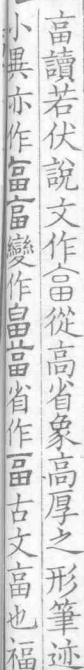 畗讀若伏說文作畐從高省象高厚之形筆迹
小異亦作畗畗變作畕畐省作畐古文畗也福